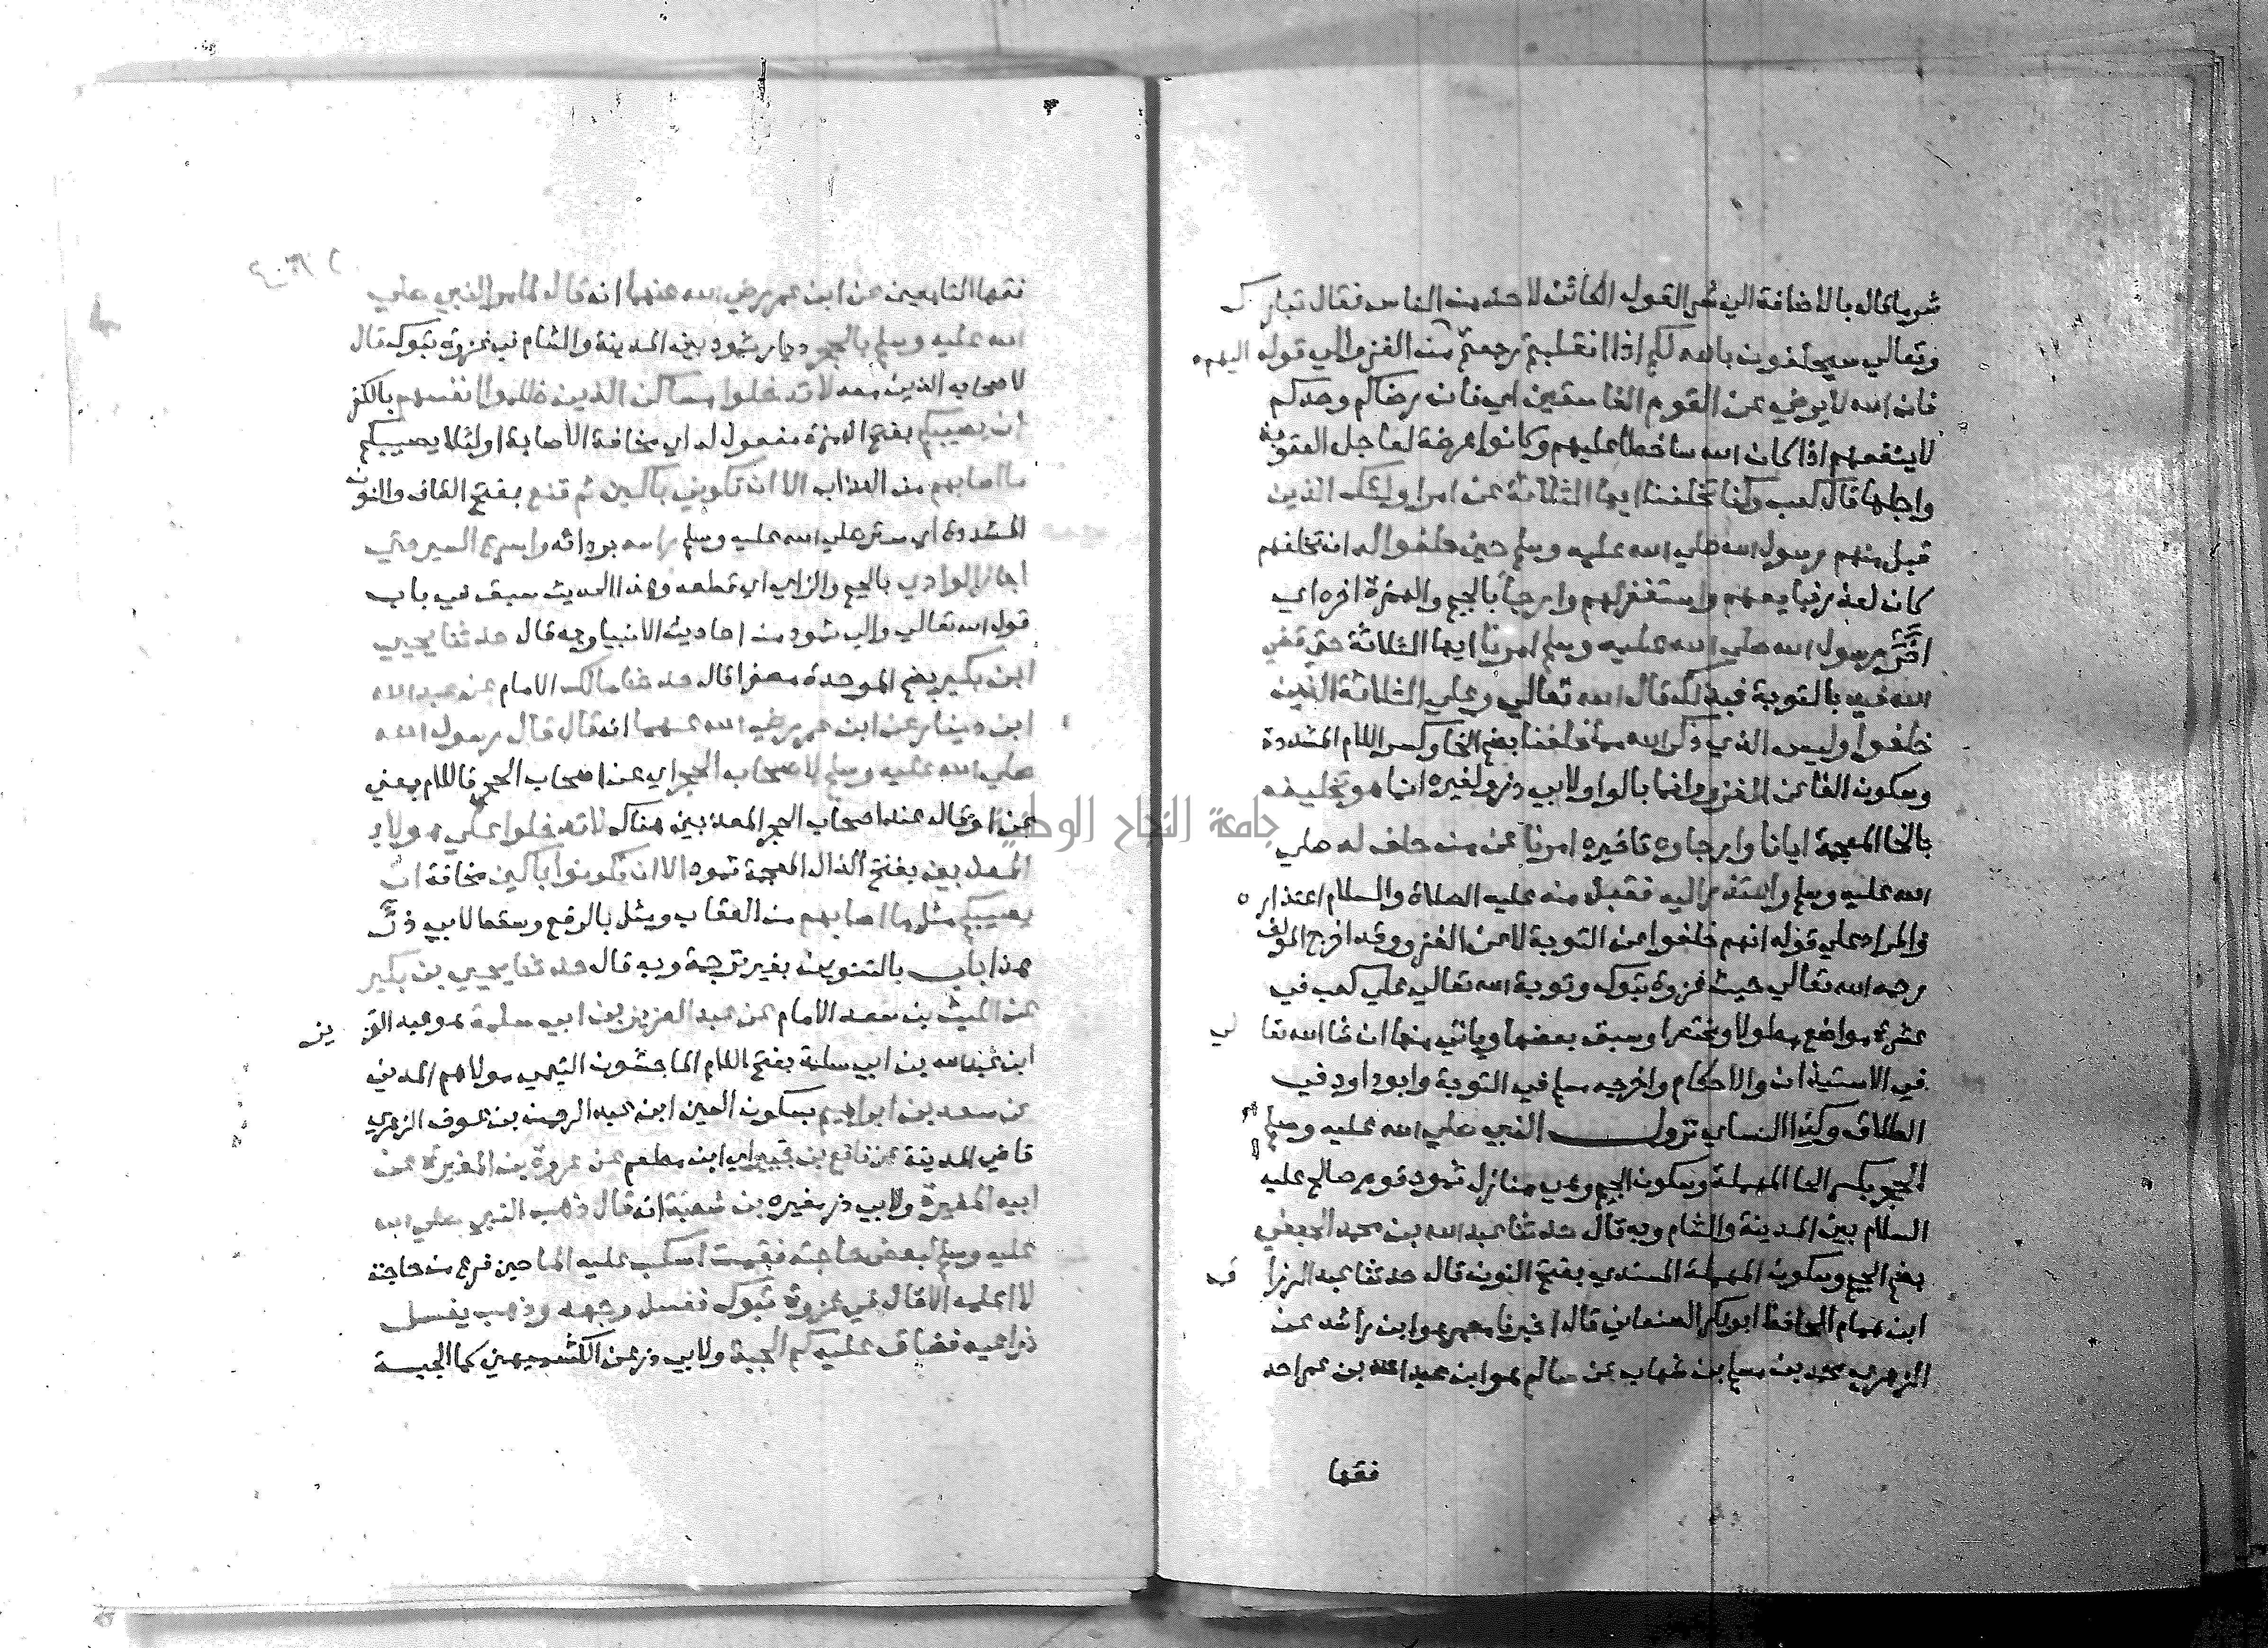 شر ما قال بالاضافة الى شر القول الكائن لاحد من الناس فقال تبارك
وتعالي سيحلفون بالله لكم اذا انقلبتم رجعتم من الغزو الي قوله اليهم
فان الله لا يرضي عن القوم الفاسقين اي فان رضاكم وحدكم
لا ينفعهم اذا كان الله ساخطا عليهم وكانوا عرضة لعاجل العقوبة
واجلها قال كعب وكنا تخلفنا ايها الثلاثة عن امر اوليك الذين
قبل منهم رسول الله صلي الله عليه وسلم حين حلفوا له ان تخلفهم
كان لعذر فبايعهم واستغفر لهم وارجأ بالجيم والهمزة اخره اي
اخر رسول الله صلي الله عليه وسلم امرنا ايها الثلاثة حتي قضي
الله فيه بالتوبة فبذلك قال الله تعالي وعلي الثلاثة الذين
خلفوا وليس الذي ذكر الله مما خلفنا بضم الخا وكسر اللام المشددة
وسكون الفا عن الغزو وانما بالواو ولابي ذر ولغيره انما هو تخليفه
بالخا المعجمة ايانا وارجاوه تاخيره امرنا عمن حلف له صلي
الله عليه وسلم واعتذر اليه فقبل منه عليه الصلاة والسلام اعتذاره
والمراد علي قوله انهم خلفوا عن التوبة لا عن الغزو وقد اخرج المولف
رحمه الله تعالي حيث غزوة تبوك وتوبة الله تعالي علي كعب في
عشرة مواضع مطولا ومختصرا وسبق بعضها وياتي منها ان شا الله تعا لي
في الاستيذان والاحكام واخرجه مسلم في التوبة وابو داود في
الطلاق وكذا النساي نزول النبي صلي الله عليه وسلم
الحجر بكسر الحا المهملة وسكون الجيم وهي منازل ثمود قوم صالح عليه
السلام بين المدينة والشام وبه قال حدثنا عبد الله بن محمد الجعفي
بضم الجيم وسكون المهملة المسندي بفتح النون قال حدثنا عبد الرزا ق
ابن همام الحافظ ابو بكر الصنعاني قال اخبرنا معمر هو ابن راشد عن
الزهري محمد بن مسلم بن شهاب عن سالم هو ابن عبد الله بن عمر احد
فقها
فقها التابعين عن ابن عمر رضي الله عنهما انه قال لما مر النبي صلي
الله عليه وسلم بالحجر ديار ثمود بين المدينة والشام في غزوة تبوك قال
لاصحابه الذين معه لا تدخلوا مساكن الذين ظلموا انفسهم بالكفر
ان يصيبكم بفتح الهمزة مفعول له اي مخافة الاصابة او لئلا يصيبكم
ما اصابهم من العذاب الا ان تكونوا باكين ثم قنع بفتح القاف والنون
المشددة اي ستر صلي الله عليه وسلم راسه بردائه واسرع السير حتي
اجاز الوادي بالجيم والزاي اي قطعه وهذا الحديث سبق في باب
قول الله تعالي والي ثمود من احاديث الانبيا وبه قال حدثنا يحيي
ابن بكير بضم الموحدة مصغرا قال حدثنا مالك الامام عن عبد الله
ابن دينار عن ابن عمر رضي الله عنهما انه قال قال رسول الله
صلي الله عليه وسلم لاصحاب الحجر اي عن اصحاب الحجر فاللام بمعني
عن او قال عند اصحاب الحجر المعذبين هناك لا تدخلوا علي هولاء
المعذبين بفتح الذال المعجمة ثمود الا ان تكونوا باكين مخافة ان
يصيبكم مثل ما اصابهم من العقاب ومثل بالرفع وسقط لابي ذر
هذا باب بالتنوين بغير ترجمة وبه قال حدثنا يحيي بن بكير
عن الليث بن سعد الامام عن عبد العزيز بن ابي سلمة هو عبد العز يز
ابن عبد الله بن ابي سلمة بفتح اللام الماجشون التيمي مولاهم المدني
عن سعد بن ابراهيم بسكون العين ابن عبد الرحمن بن عوف الزهري
قاضي المدينة عن نافع بن جبير اي ابن مطعم عن عروة بن المغيرة عن
ابيه المغيرة ولابي ذر مغيره بن شعبة انه قال ذهب النبي صلي الله
عليه وسلم لبعض حاجته فقمت اسكب عليه الما حين فرغ من حاجته
لا اعلمه الا قال في غزوة تبوك فغسل وجهه وذهب يغسل
ذراعيه فضاق عليه كم الجبة ولابي ذر عن الكشميهني كما الجبة
جامعة النجاح الوطنية